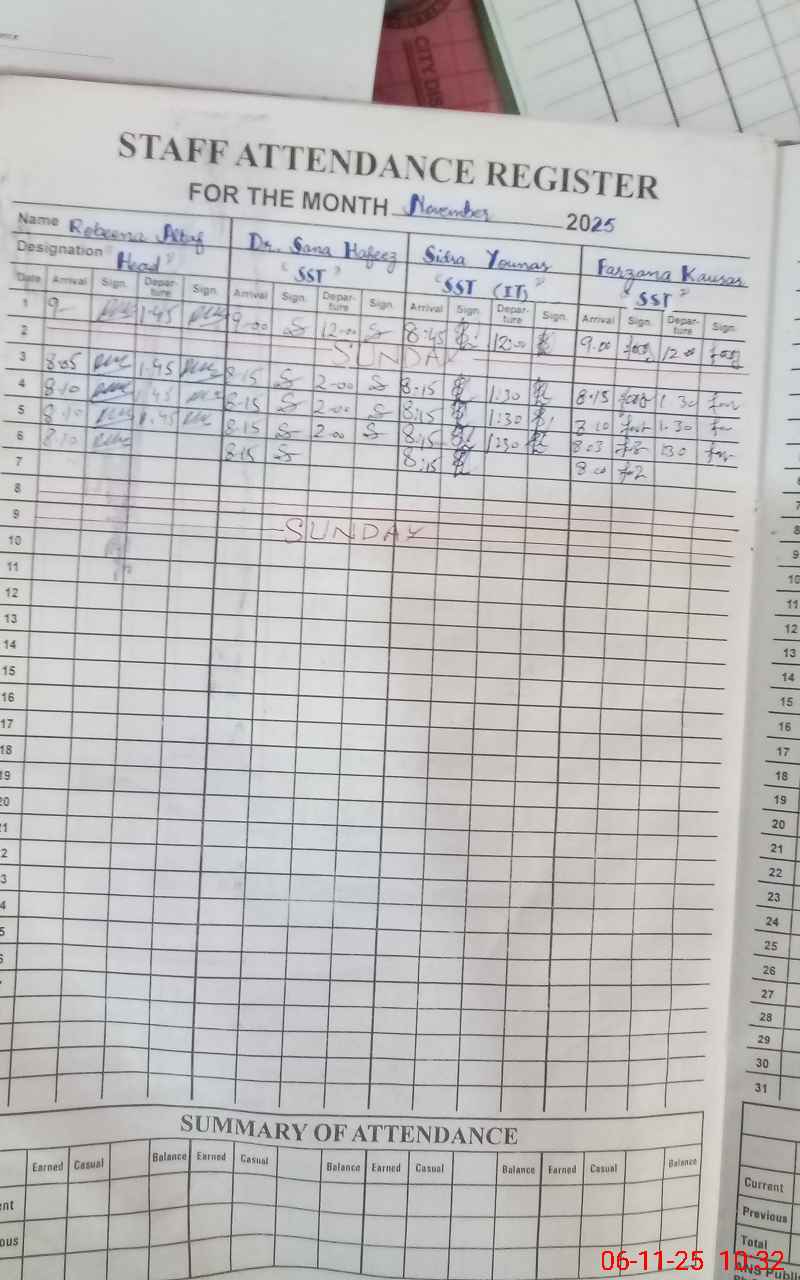 CITY DIS
STAFF ATTENDANCE REGISTER
FOR THE MONTH November 2025
Name Robeena Altaf Dr. Sana Hafeez Sidra Younas Farzana Kausar
Designation "Head" "SST" "SST (IT)" "SST"
Date Arrival Sign. Depar-ture Sign. Arrival Sign. Depar-ture Sign. Arrival Sign. Depar-ture Sign. Arrival Sign. Depar-ture Sign.
1 9 1.45 9.00 12.00 8:45 12:00 9.00 12.00
2 SUNDAY
3 8.05 1.45 8.15 2.00 8.15 1:30 8.15 1.30
4 8.10 1.45 8.15 2.00 8:15 1:30 8.10 1.30
5 8.10 1.45 8.15 2.00 8:15 1:30 8.03 1.30
6 8.10 8.15 8:15 8.00
7
8
9 SUNDAY
10
11
12
13
14
15
16
17
18
19
20
21
2
3
4
5
6
SUMMARY OF ATTENDANCE
Earned Casual Balance Earned Casual Balance Earned Casual Balance Earned Casual Balance
ent
ous
7
8
9
10
11
12
13
14
15
16
17
18
19
20
21
22
23
24
25
26
27
28
29
30
31
Current
Previous
Total
ANS Publi
06-11-25 10:32